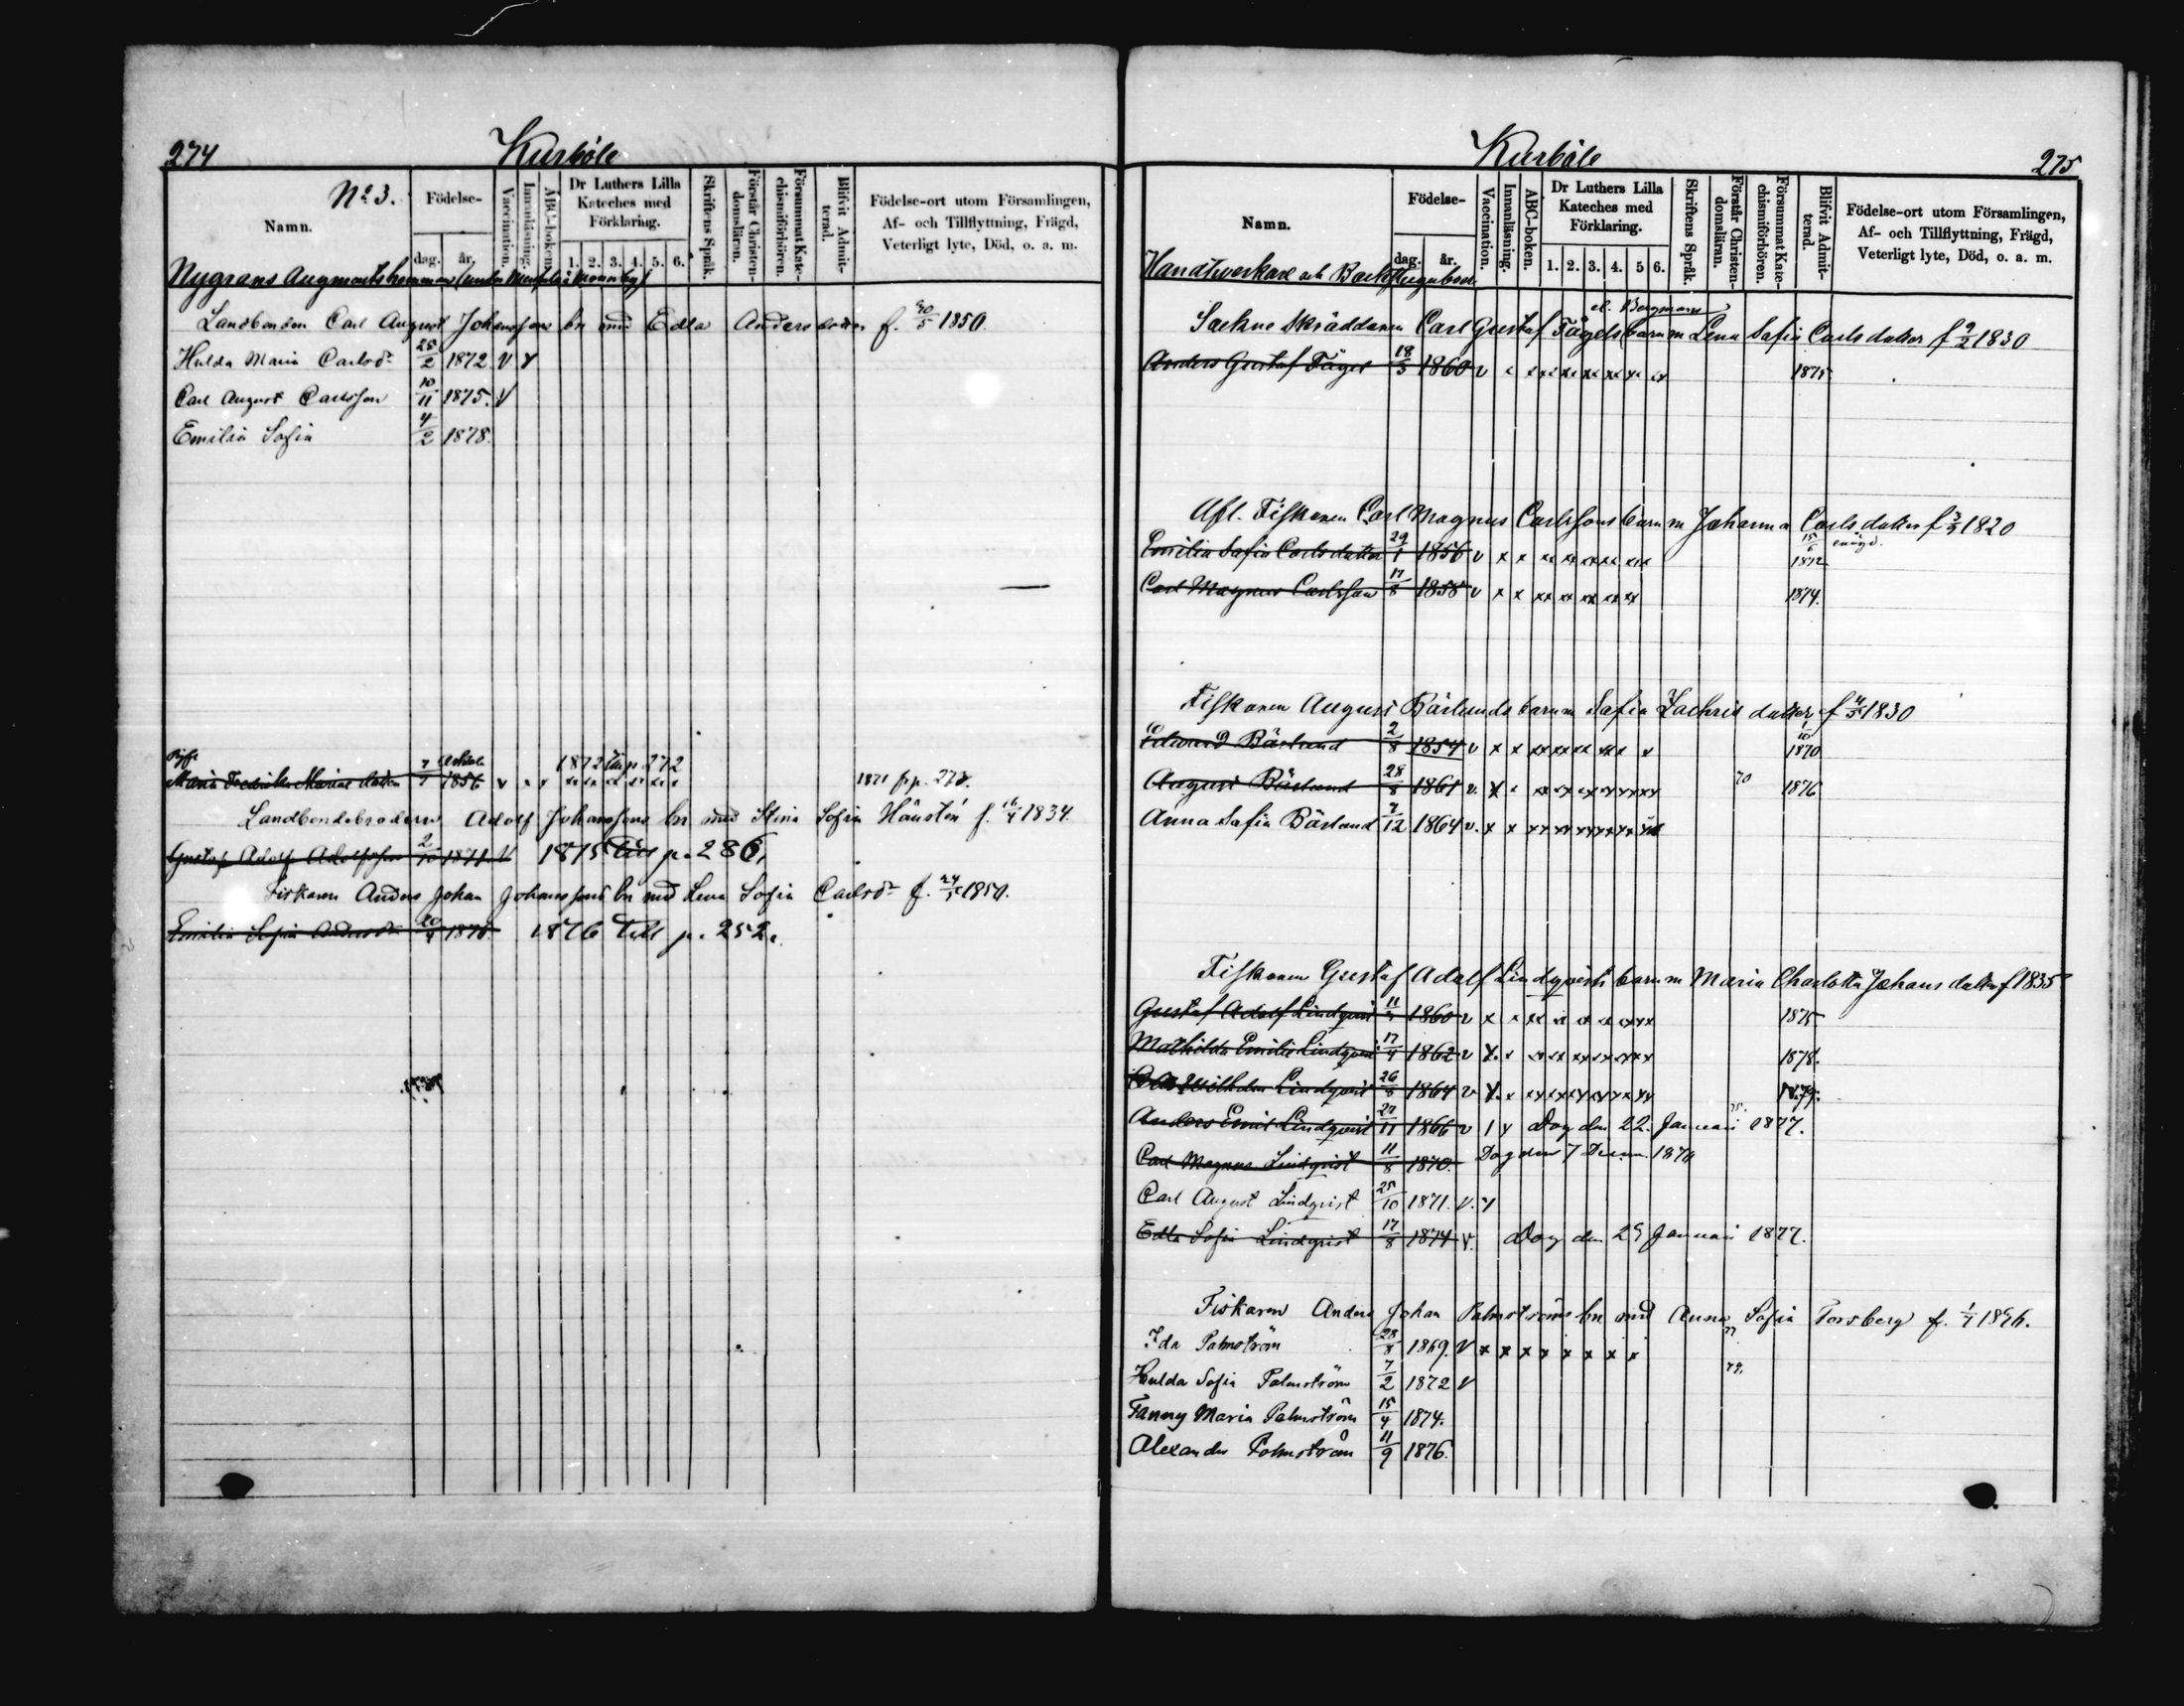 274
Kurböle
No 3.
Namn.
Födelse-
dag. år.
Vaccination.
Innanläsning.
ABC-boken.
Dr Luthers Lilla Kateches med Förklaring.
1. 2. 3. 4. 5. 6.
Skriftens Språk.
Förstår Christendomsläran.
Försummat Katechismiförhören.
Blifvit Admitterad.
Födelse-ort utom Församlingen, Af- och Tillflyttning, Frägd, Veterligt lyte, Död, o. a. m.
Nygrans Augments hemman
Landbonden Carl August Johanssons bn med Edla Andersdotter f. 30/5 1850.
Hulda Maria Carlsdr 28/2 1872 V Y
Carl August Carlsson 10/11 1875. V
Emilia Sofia 4/2 1878.
1872 p. 272
Maria Fredrika 1856 v 1871 fr p. 272.
Landbondebrodern Adolf Johanssons bn med Stina Sofia f. 16/4 1834.
Gustaf Adolf Adolfsson 2/10 1871 V 1875 till p. 286.
Fiskaren Anders Johan Johanssons bn med Lena Sofia Carlsdr f. 24/5 1850.
Emilia Sofia Andersdr 20/4 1876 till p. 252.
Kurböle
275
Namn.
Födelse-
dag. år.
Vaccination.
Innanläsning.
ABC-boken.
Dr Luthers Lilla Kateches med Förklaring.
1. 2. 3. 4. 5 6.
Skriftens Språk.
Förstår Christendomsläran.
Försummat Katechismiförhören.
Blifvit Admitterad.
Födelse-ort utom Församlingen, Af- och Tillflyttning, Frägd, Veterligt lyte, Död, o. a. m.
Handtverkare och Backstuguboer
el. Bergmans
Sockne Skräddaren Carl Gustaf Fågels barn m Lena Sofia Carlsdotter f 9/2 1830
Anders Gustaf Fågel 18/3 1860 v x xx xx xx xx xx 1875
Afl. Fiskaren Carl Magnus Carlssons barn m Johanna Carlsdotter f 1820
Emilia Sofia Carlsdotter 29/1 1856 v x x xx xx xx xx 15/6 1872
Carl Magnus Carlsson 17/8 1858 v x x xx xx xx xx 1874.
Fiskaren August Bärlunds barn m Sofia Zachrisdotter f 1830
Edvard Bärlund 2/8 1854 v x x xx xx xx v 1870
August Bärlund 28/8 1861 v. x x 70 1876
Anna Sofia Bärlund 7/12 1864 v. x x
Fiskaren Gustaf Adolf Lindqvists barn m Maria Charlotta Johansdotter f 1835
Gustaf Adolf Lindqvist 1860 v x x 1875
Mathilda Emilia Lindqvist 17/4 1862 v 1878.
Wilhelm Lindqvist 26/8 1864 v 1879.
Anders Emil Lindqvist 27/11 1866 v Dog den 22. Januari 1877.
Carl Magnus Lindqvist 11/8 1870. Dog den 7 Decem. 1870
Carl August Lindqvist 25/10 1871. V. Y
Edla Sofia Lindqvist 17/8 1874 V. Dog den 29 Januari 1877.
Fiskaren Anders Johan Palmströms bn med Anna Sofia Forsberg f. 1846.
Ida Palmström 28/8 1869. V x x x x x x x x 77
Hulda Sofia Palmström 7/2 1872 V 79.
Fanny Maria Palmström 15/4 1874.
Alexander Palmström 11/9 1876.